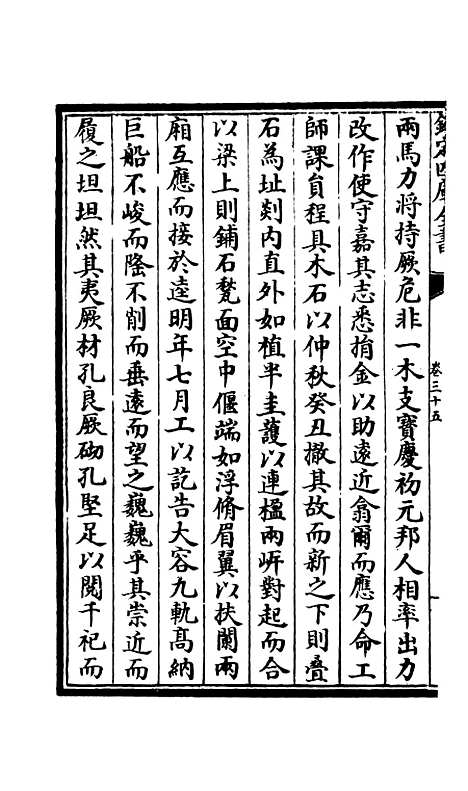 欽定四庫全書
卷三十五
兩馬力將持厥危非一木支寳慶初元邦人相率出力
改作使守嘉其志悉捐金以助遠近翕爾而應乃命工
師課貟程具木石以仲秋癸丑撤其故而新之下則疊
石為址剡内直外如植半圭䕶以連楹兩㟁對起而合
以梁上則鋪石甃面空中偃端如浮脩眉翼以扶闌兩
廂互應而接於逵明年七月工以訖告大容九軌髙納
巨船不峻而隆不削而垂逺而望之巍巍乎其崇近而
履之坦坦然其夷厥材孔良厥砌孔堅足以閱千祀而